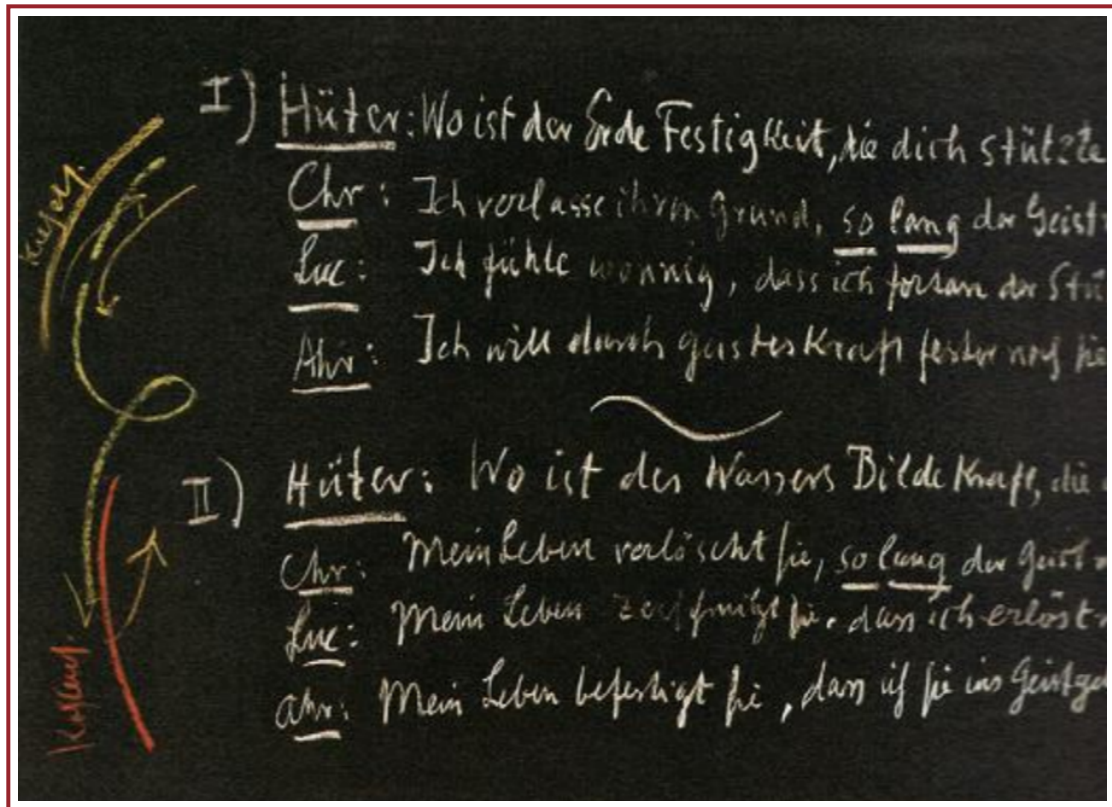 Kiesel.
I) Hüter: Wo ist der Erde Festigkeit, die dich stützte
Chr: Ich verlasse ihren Grund, so lang der Geist
Luc: Ich fühle wonnig, dass ich fortan der Stü
Ahr: Ich will durch geisteskraft fester noch sie
II) Hüter: Wo ist des Wassers Bildekraft, die
Chr: Mein Leben verlöscht sie, so lang der Geist
Luc: Mein Leben zerschmilzt sie, dass ich erlöst
Ahr: Mein Leben befestigt sie, dass ich sie ins Geistge